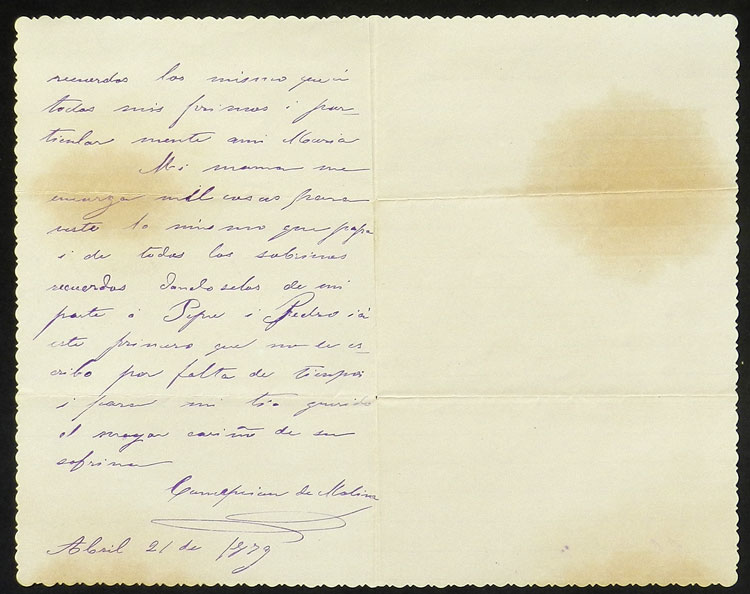 recuerdos los mismo que á
todos mis primos i par-
ticular mente ami Maria
Mi mama me
encarga mil cosas para
uste lo mismo que papa
i de todos los sobrinos
recuerdos dandoselos de mi
parte á Pepe i Pedro i á
este primero que no le es-
cribo por falta de tiempo
i para mi tio querido
el mayor cariño de su
sobrina
Concepcion de Molina
Abril 21 de 1879